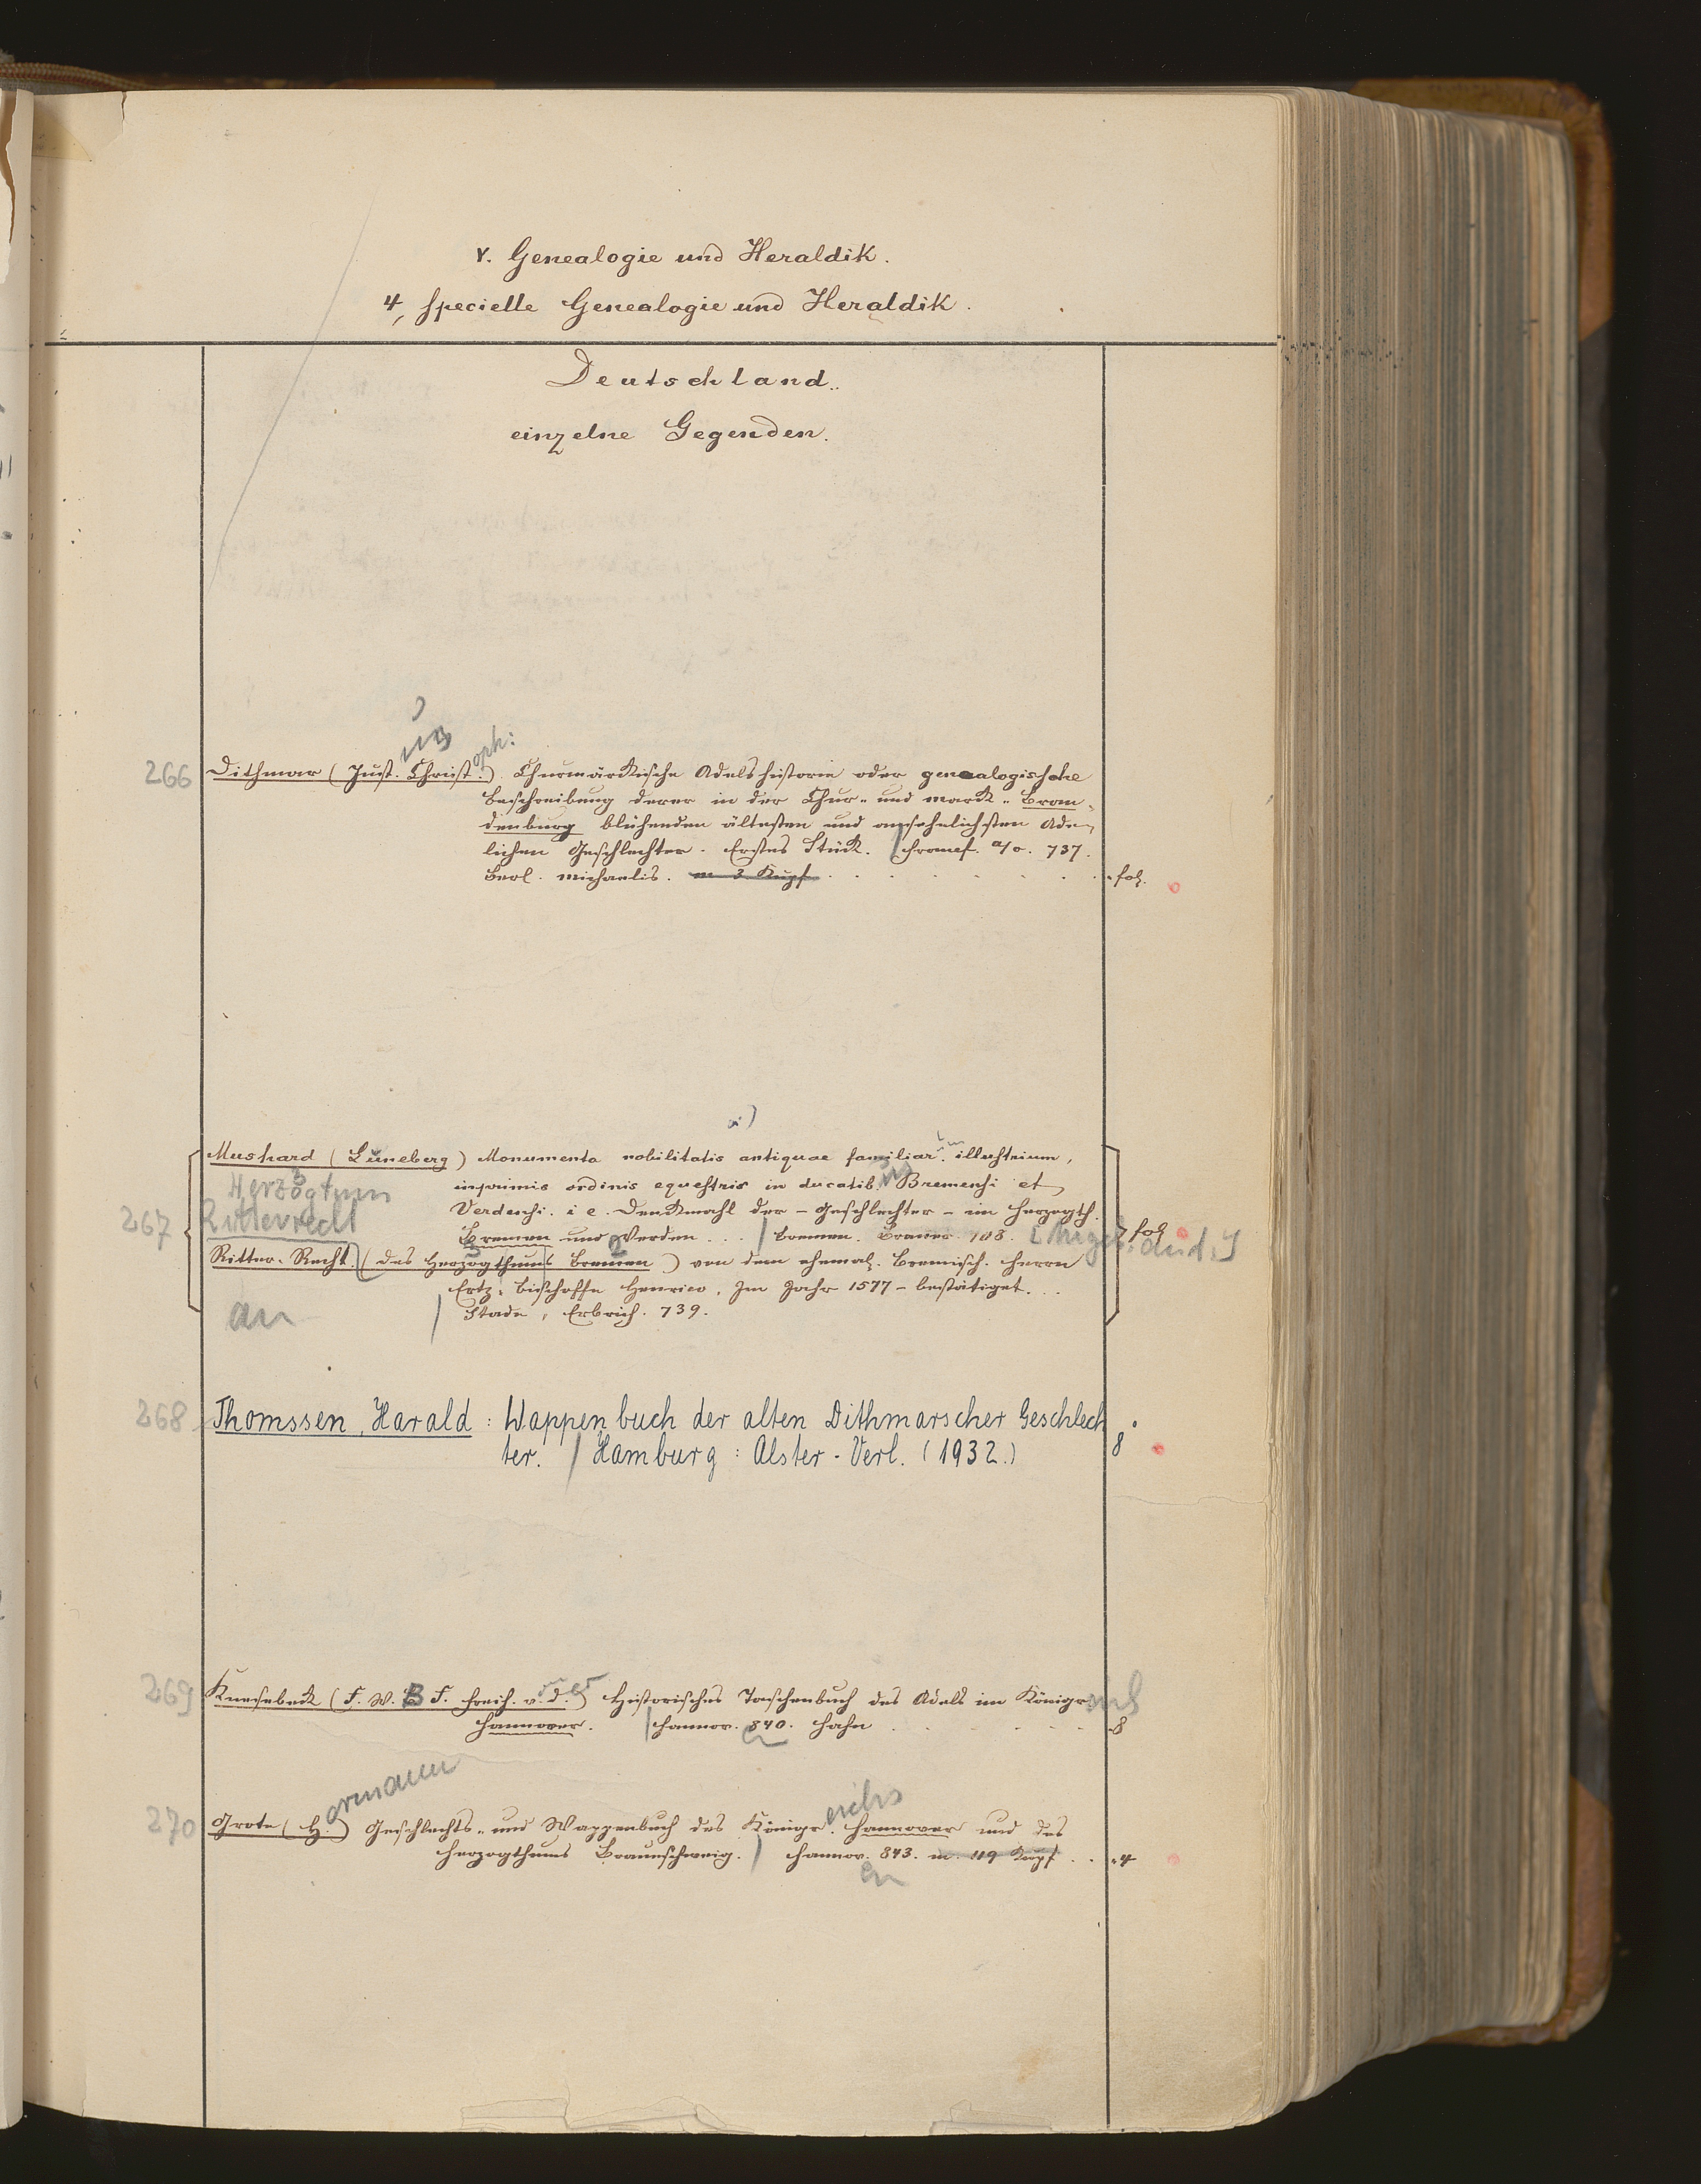 V. Genealogie und Heraldik.
4, Specielle Genealogie und Heraldik.
Deutschland.
einzelne Gegenden.
us
oph:
266 Dithmar (Just. Christ.) Churmärkische Adelshistorie oder genealogische
Beschreibung derer in der Chur- und Mark- Bran-
denburg blühenden ältesten und ansehnlichsten Ade-
lichen Geschlechter. Erstes Stück. / Francf. a/O. 737.
Berl. Michaelis. m 3 Kupf. fol.
Mushard (Luneberg) Monumenta nobilitatis antiquae familiar. illustrium,
inprimis ordinis equestris in ducatib. Bremensi et
Verdensi. i e. Denkmahl der - Geschlechter - im Herzogth.
Herzogtum
267 Ritterrecht
Bremen und Verden ... / Bremen. Brauer. 708. fol
Ritter-Recht (des Herzogthums Bremen) von dem ehemal. Bremisch. Herrn
Ertz-Bischoffe Henrico, Im Jahr 1577 - bestätiget. ..
an
/ Stade, Erbrich. 739.
268 Thomssen, Harald: Wappenbuch der alten Dithmarscher Geschlech
ter. / Hamburg: Alster-Verl. (1932.) 8°
269 Knesebeck (F. W. B F. Freih. v. d.) Historisches Taschenbuch des Adels im Königr
Hannover. / Hannov. 840. Hahn 8
ermann
eichs
270 Grote (H.) Geschlechts- und Wappenbuch des Königr. Hannover und des
Herzogthums Braunschweig. / Hannov. 843. m. 119 Kupf. 4